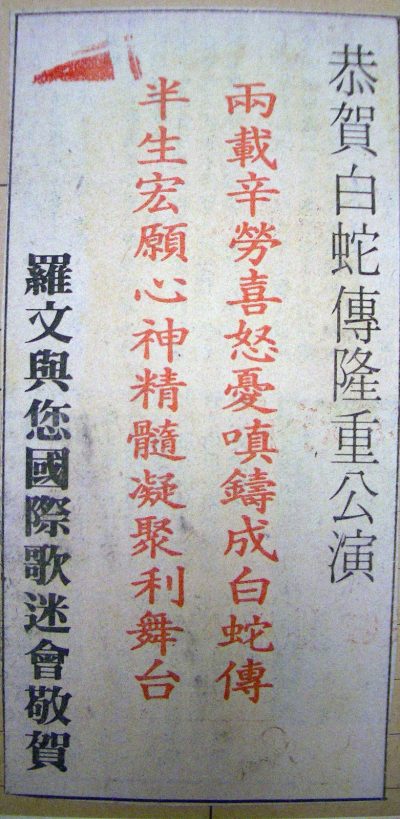 恭賀白蛇傳隆重公演
兩載辛勞喜怒憂嗔鑄成白蛇傳
半生宏願心神精髓凝聚利舞台
羅文與您國際歌迷會敬賀